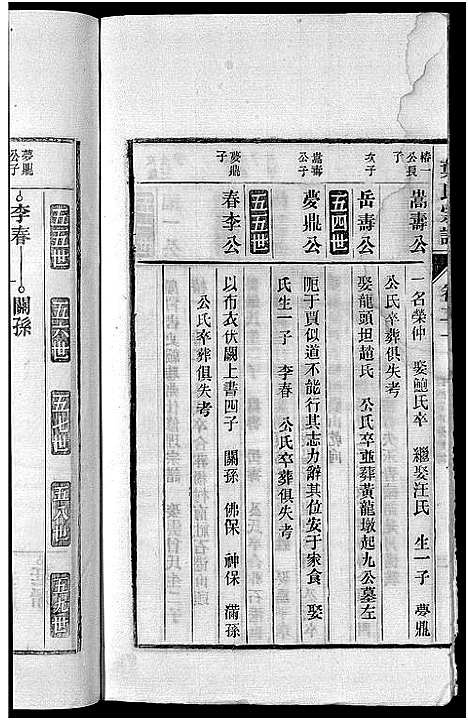 葉氏宗譜
卷二
椿一公長子
嵩壽公
一名榮仲 娶鮑氏卒 繼娶汪氏 生一子 夢鼎
公氏卒葬俱失考
次子
岳壽公
娶龍頭坦趙氏 公氏卒並葬黃龍墩起九公墓左
五四世
嵩壽公子
夢鼎公
阨于賈似道不能行其志力辭其位安于家食 娶
氏生一子 李春 公氏卒葬俱失考
五五世
夢鼎子
春李公
以布衣伏闕上書四子 關孫 佛保 神保 滿孫
公氏卒葬俱失考
五五世 五六世 五七世 五八世 五九世
夢鼎公子
李春
關孫